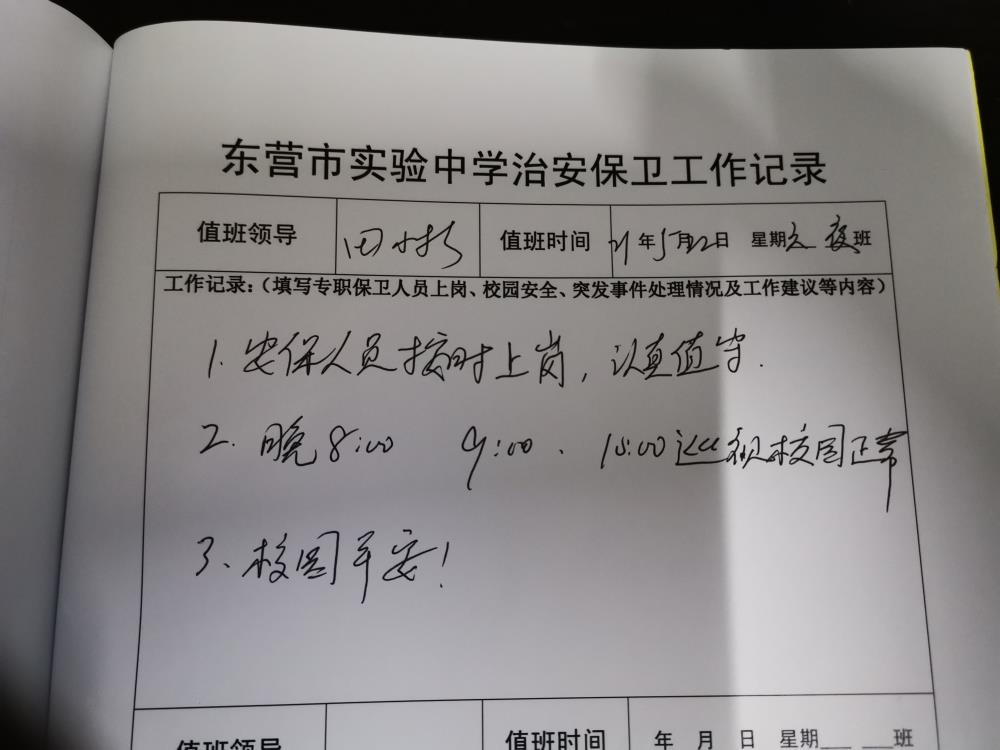 东营市实验中学治安保卫工作记录
值班领导 田 值班时间 21年5月22日 星期六 夜班
工作记录:(填写专职保卫人员上岗、校园安全、突发事件处理情况及工作建议等内容)
1. 安保人员按时上岗, 认真值守.
2. 晚8:00 9:00 、 10:00巡视校园正常
3、校园平安!
值班领导 值班时间 年 月 日 星期 班